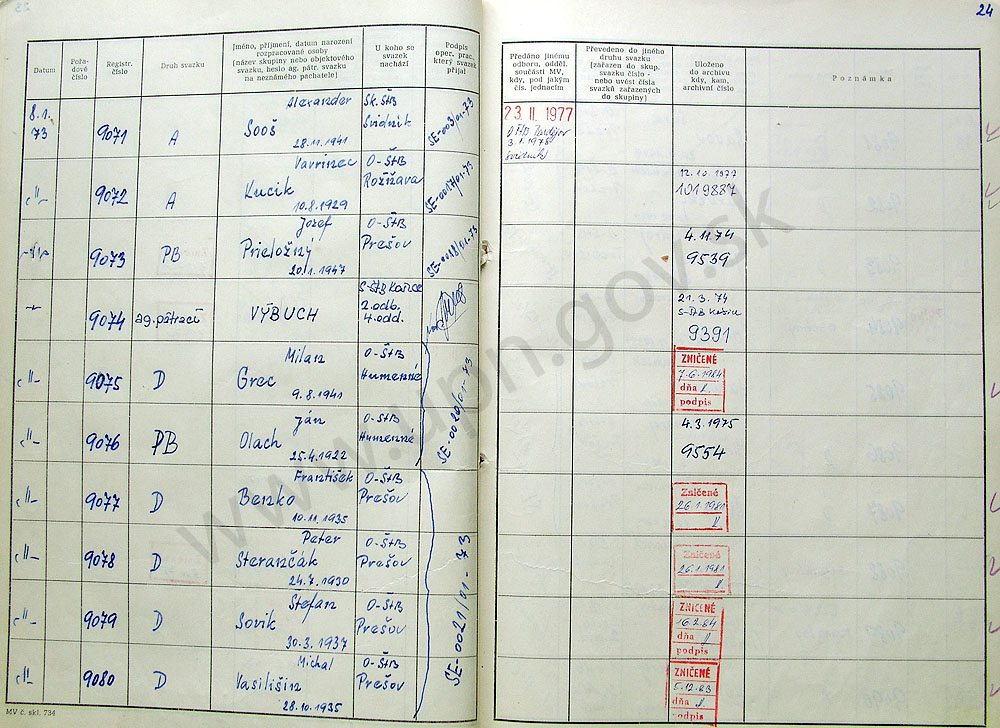 24
Datum
Pořa-
dové
číslo
Registr.
číslo
Druh svazku
Jméno, příjmení, datum narození
rozpracované osoby
(název skupiny nebo objektového
svazku, heslo ag. pátr. svazku
na neznámého pachatele)
U koho se
svazek
nachází
Podpis
oper. prac.,
který svazek
přijal
Předáno jinému
odboru, odděl.
součásti MV,
kdy, pod jakým
čís. jednacím
Převedeno do jiného
druhu svazku
(zařazen do skup.
svazku číslo -
nebo uvést čísla
svazků zařazených
do skupiny)
Uloženo
do archivu
kdy, kam,
archivní číslo
Poznámka
8.1.
73
9071
A
Alexander
Sooš
28.11.1941
Sk.ŠtB
Svidník
SE-003/01-73
23. II. 1977
3.1.1978
Svidník
-"-
9072
A
Vavrinec
Kucik
10.8.1929
O-ŠtB
Rožňava
SE-0017/01-73
12.10.1977
1019887
-"-
9073
PB
Jozef
Prieložný
20.1.1947
O-ŠtB
Prešov
SE-0018/01-73
4.11.74
9539
-"-
9074
ag.pátrací
VÝBUCH
S-ŠtB Košice
2.odb.
4.odd.
21.3.74
S-ŠtB Košice
9391
-"-
9075
D
Milan
Grec
9.8.1941
O-ŠtB
Humenné
SE-0020/01-73
ZNIČENÉ
7.6.1984
dňa
podpis
-"-
9076
PB
Ján
Olach
25.4.1922
O-ŠtB
Humenné
4.3.1975
9554
-"-
9077
D
František
Benko
10.11.1935
O-ŠtB
Prešov
SE-0021/01-73
Zničené
26.1.1981
-"-
9078
D
Peter
Sterančák
24.7.1930
O-ŠtB
Prešov
Zničené
26.1.1981
-"-
9079
D
Štefan
Sovik
30.3.1937
O-ŠtB
Prešov
ZNIČENÉ
16.2.84
dňa
podpis
-"-
9080
D
Michal
Vasilišin
28.10.1935
O-ŠtB
Prešov
ZNIČENÉ
5.12.83
dňa
podpis
MV č. skl. 734
www.upn.gov.sk